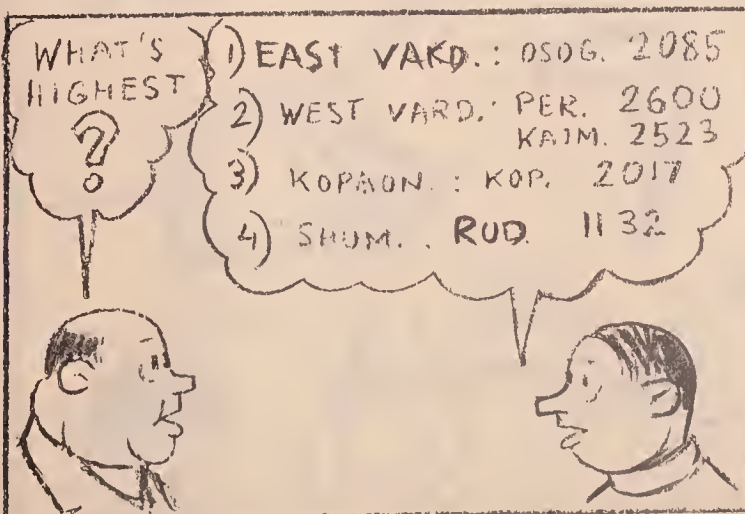 WHAT'S
HIGHEST
?
1) EAST VARD.: OSOG. 2085
2) WEST VARD.: PER. 2600
KAJM. 2523
3) KOPAON. : KOP. 2017
4) SHUM. . RUD. 1132